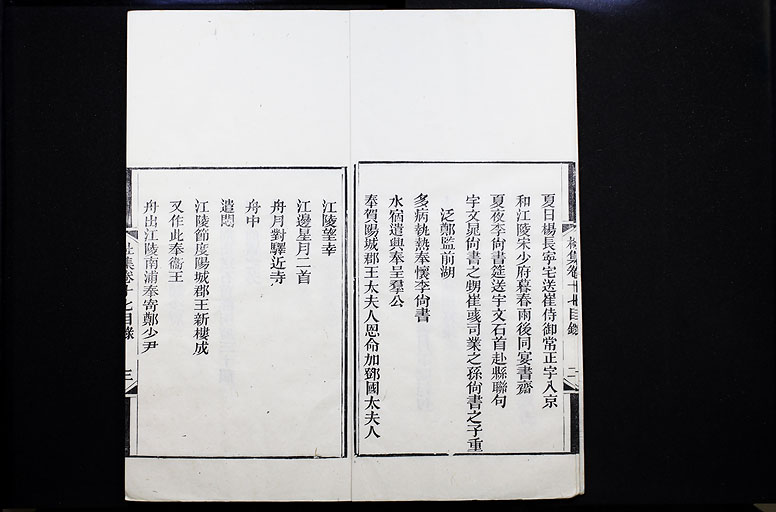 杜集卷十七目錄 二
夏日楊長寧宅送崔侍御常正字入京
和江陵宋少府暮春雨後同宴書齋
夏夜李尙書筵送宇文石首赴縣聯句
宇文晁尙書之甥崔彧司業之孫尙書之子重
泛鄭監前湖
多病執熱奉懷李尙書
水宿遣興奉呈羣公
奉賀陽城郡王太夫人恩命加鄧國太夫人
江陵望幸
江邊星月二首
舟月對驛近寺
舟中
遣悶
江陵節度陽城郡王新樓成
又作此奉衞王
舟出江陵南浦奉寄鄭少尹
杜集卷十七目錄 三